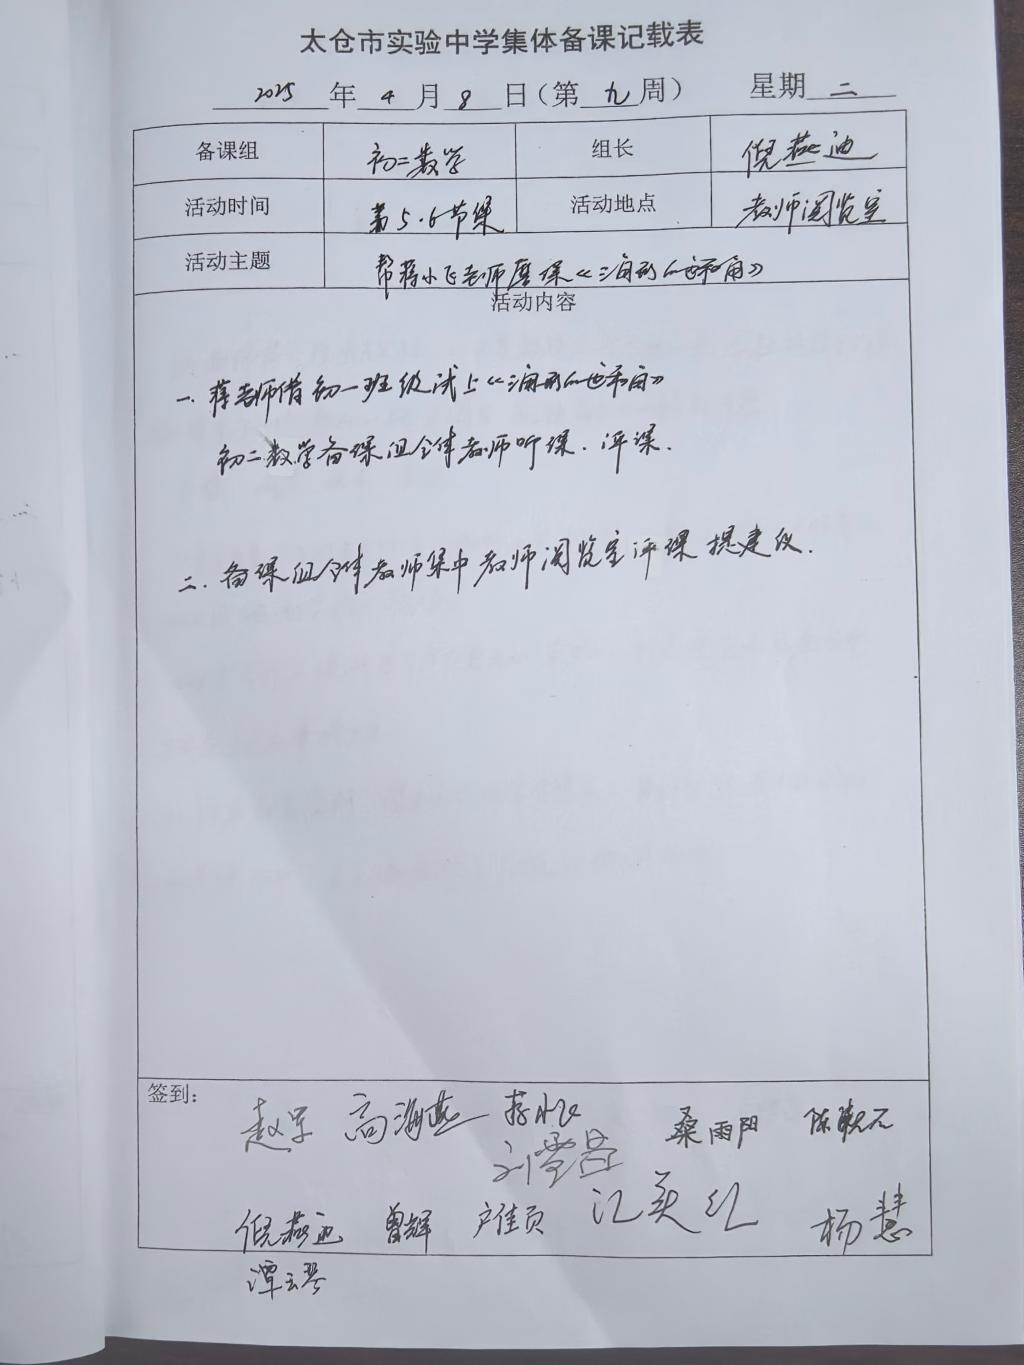 太仓市实验中学集体备课记载表
2025年4月8日(第九周) 星期二
备课组 初二数学 组长 倪燕迪
活动时间 第5.6节课 活动地点 教师阅览室
活动主题 帮蒋小飞老师磨课《三角形的内角和》
活动内容
一. 蒋老师借初一班级试上《三角形的内角和》
初二数学备课组全体教师听课.评课.
二. 备课组全体教师集中教师阅览室评课提建议.
签到:
赵军 高海燕 蒋小飞 桑雨阳 陈
刘雪
倪燕迪 曾辉 江英红 杨慧
潭云琴